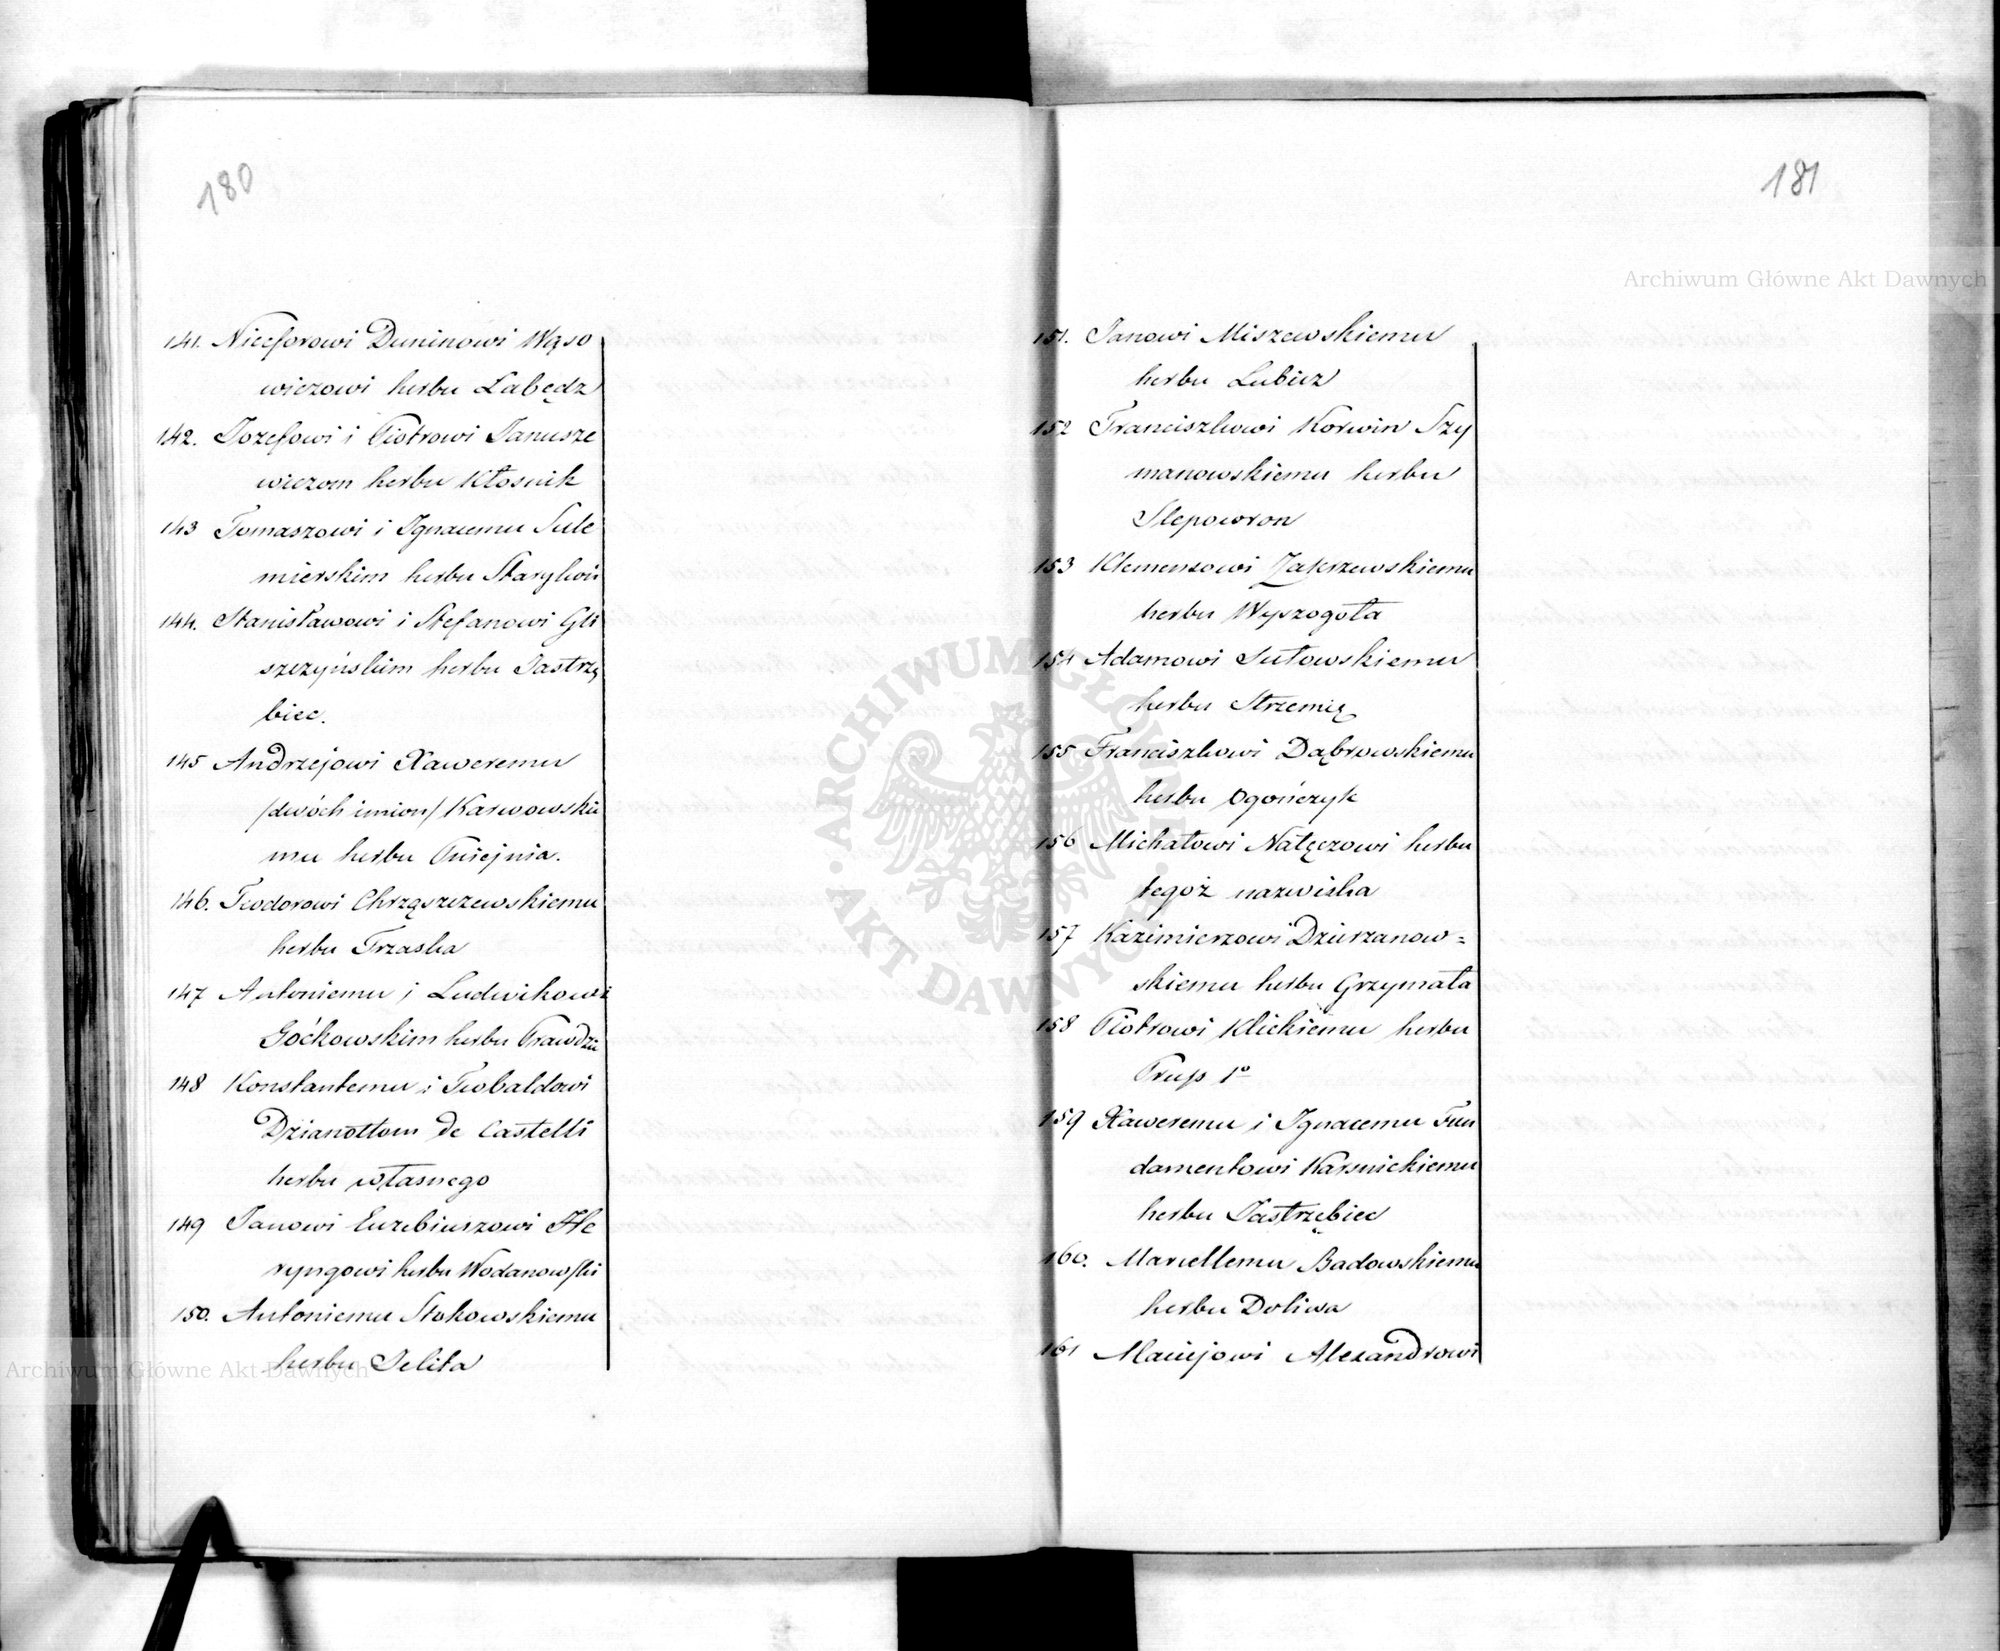 180
141. Niceforowi Duninowi Wąso
wiczowi herbu Łabędz
142. Jozefowi i Piotrowi Janusze
wiczom herbu Kłosnik
143 Tomaszowi i Ignacemu Sule
mierskim herbu Starykoń
144. Stanisławowi i Stefanowi Gli
szczyńskim herbu Jastrzę
biec.
145 Andrzejowi Xaweremu
/dwóch imion/ Karwowskie
mu herbu Pniejnia.
146. Teodorowi Chrząszczewskiemu
herbu Trzaska
147 Antoniemu i Ludwikowi
Goćkowskim herbu Prawdzic
148 Konstantemu i Teobaldowi
Dzianottom de Castelli
herbu własnego
149 Janowi Euzebiuszowi He
ryngowi herbu Wodanowski
150. Antoniemu Stokowskiemu
herbu Jelita
181
151. Janowi Miszewskiemu
herbu Lubicz
152 Franciszkowi Korwin Szy
manowskiemu herbu
Slepowron
153 Klemensowi Zakrzewskiemu
herbu Wyszogota
154 Adamowi Sułowskiemu
herbu Strzemię
155 Franciszkowi Dąbrowskiemu
herbu Ogończyk
156 Michałowi Nałęczowi herbu
tegoż nazwiska
157 Kazimierzowi Dzierzanow=
skiemu herbu Grzymała
158 Piotrowi Klickiemu herbu
Prus 1º
159 Xaweremu i Ignacemu Fun
damentowi Karsnickiemu
herbu Jastrzębiec
160. Marcellemu Badowskiemu
herbu Doliwa
161 Maciejowi Alexandrowi
Archiwum Główne Akt Dawnych
Archiwum Główne Akt Dawnych
· ARCHIWUM GŁÓWNE · AKT DAWNYCH